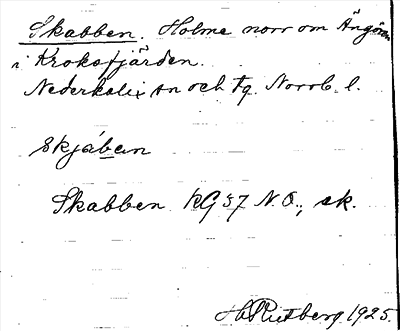 Skabben. Holme norr om Ängören
i Kroksfjärden.
Nederkalix sn och tg. Norrb. l.
skjában
Skabben RG 37 N.O., sk.
Rutberg 1925.